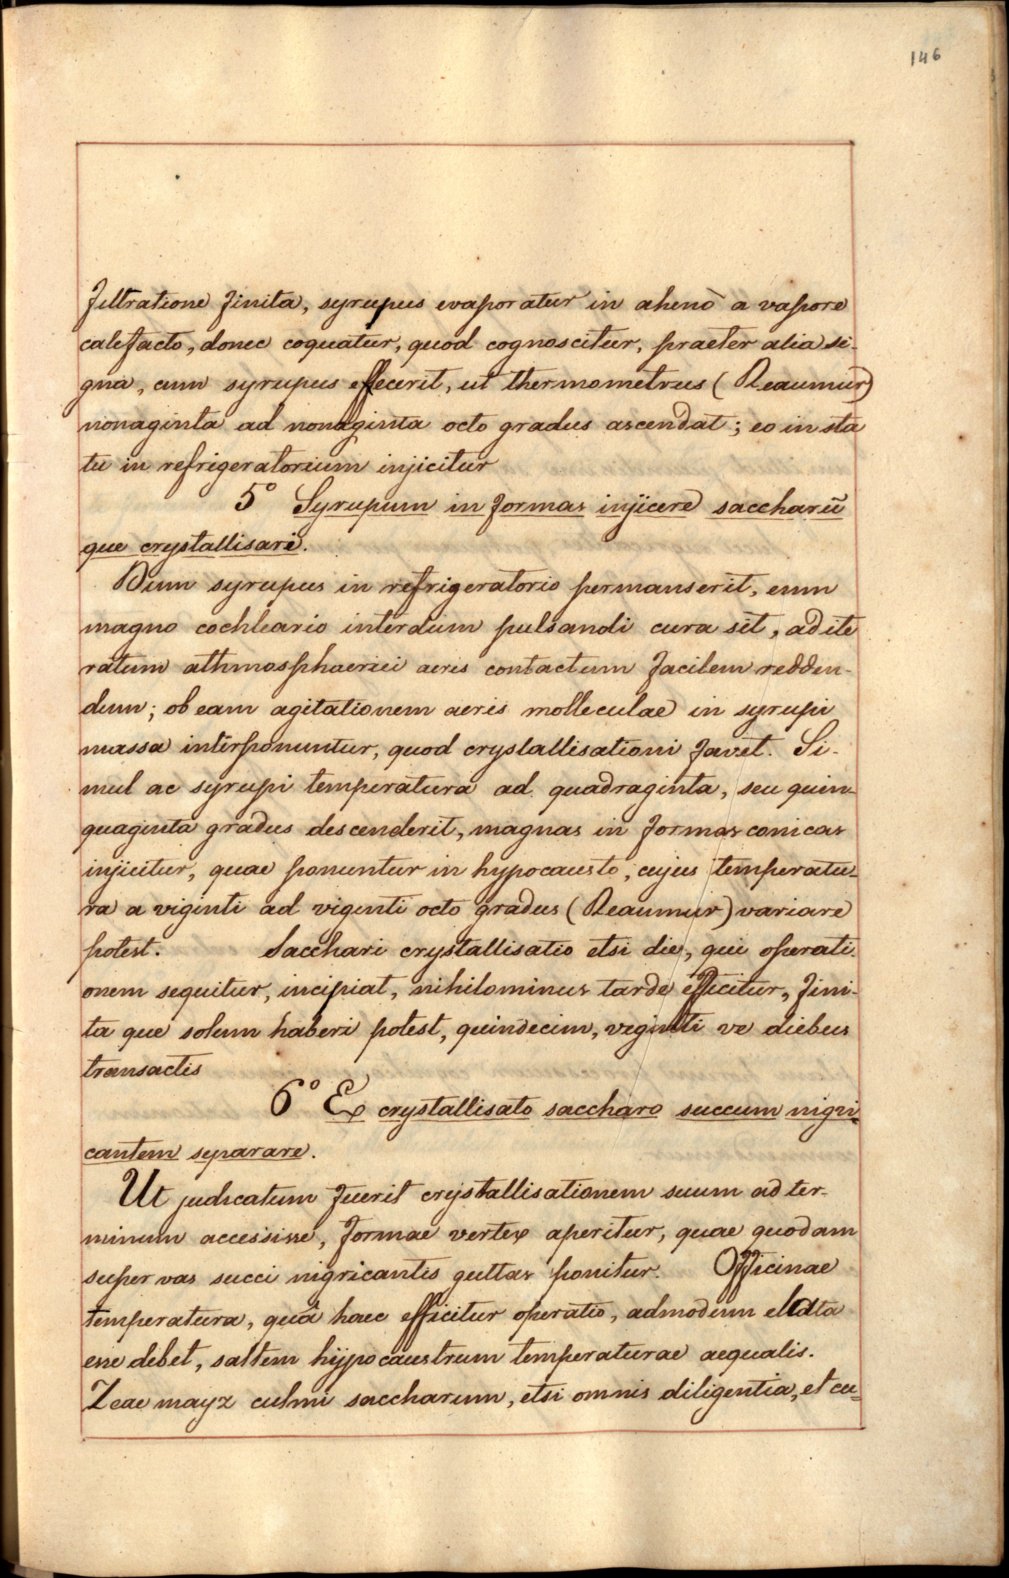 146
Filtratione finita, syrupus evaporatur in ahenò a vapore
calefacto, donec coquatur, quod cognoscitur, praeter alia si-
gna, cum syrupus effecerit, ut thermometrus (Reaumur)
nonaginta ad nonaginta octo gradus ascendat; eo in sta
tu in refrigeratorium injicitur
5° Syrupum in formas injicere saccharū
que crystallisare.
Dum syrupus in refrigeratorio permanserit, eum
magno cochleario interdum pulsandi cura sit, ad ite
ratum athmosphaerici aeris contactum facilem redden-
dum; ob eam agitationem aeris molleculae in syrupi
massa interponuntur, quod crystallisationi favet. Si-
mul ac syrupi temperatura ad quadraginta, seu quin-
quaginta gradus descenderit, magnas in formas conicas
injicitur, quae ponuntur in hypocausto, cujus temperatu-
ra a viginti ad viginti octo gradus (Reaumur) variare
potest. Sacchari crystallisatio etsi die, qui operati-
onem sequitur, incipiat, nihilominus tarde efficitur, fini-
ta que solum haberi potest, quindecim, viginti ve diebus
transactis
6° Ex crystallisato saccharo succum nigri-
cantem separare.
Ut judicatum fuerit crystallisationem suum ad ter-
minum accessisse, formae vertex aperitur, quae quodam
super vas succi nigricantis guttas ponitur. Officinae
temperatura, quâ haec efficitur operatio, admodum elata
esse debet, saltem hypocaustrum temperaturae aequalis.
Zeae mayz culmi saccharum, etsi omnis diligentia, et cu-